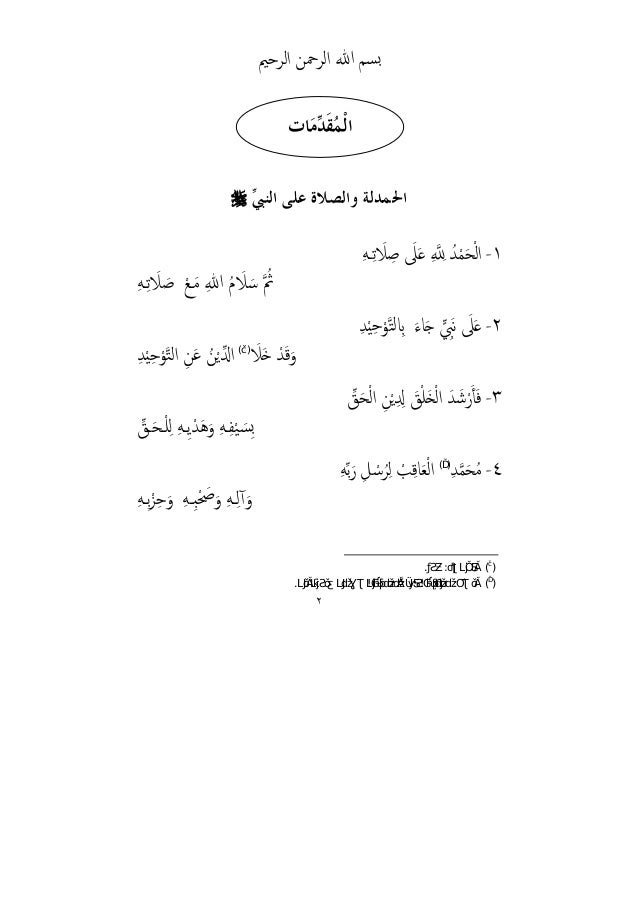 بسم الله الرحمن الرحيم
الْمُقَدِّمَات
الحمدلة والصلاة على النبيِّ ﷺ
١- الْحَمْدُ لِلَّهِ عَلَى صِلَاتِـهِ
ثُمَّ سَلَامُ اللهِ مَـعْ صَلَاتِـهِ
٢- عَلَى نَبِيٍّ جَاءَ بِالتَّوْحِيْدِ
وَقَدْ خَلَا الدِّيْنُ عَنِ التَّوْحِيْدِ
٣- فَأَرْشَدَ الْخَلْقَ لِدِيْنِ الْحَقِّ
بِسَيْـفِـهِ وَهَدْيِـهِ لِلْـحَـقِّ
٤- مُحَمَّدِ الْعَاقِبْ لِرُسْلِ رَبِّهِ
وَآلِـهِ وَصَحْبِـهِ وَحِزْبِـهِ
٢